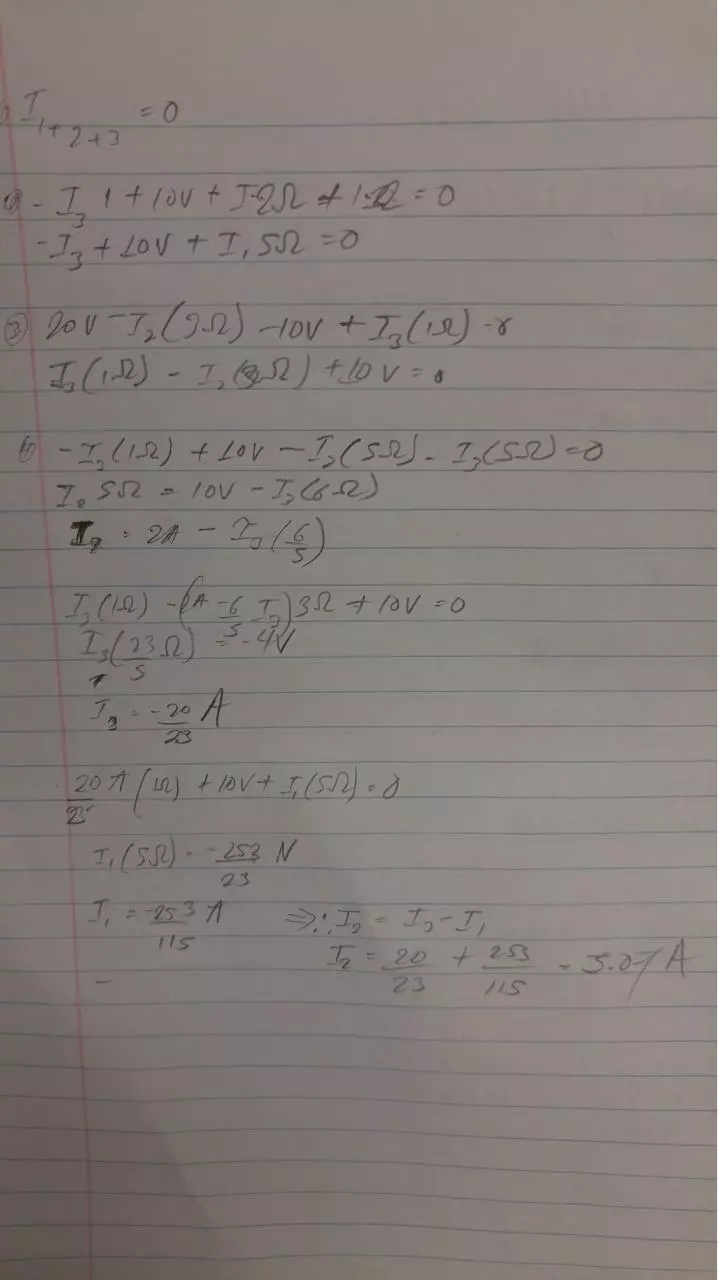 I₁₊₂₊₃ = 0
- I₃ 1 + 10V + I·2Ω + 1·Ω = 0
- I₃ + 10V + I₁ 5Ω = 0
③ 20V - I₂(3Ω) - 10V + I₃(1Ω) = 0
I₃(1Ω) - I₂(3Ω) + 10V = 0
- I₃(1Ω) + 10V - I₂(5Ω) - I₃(5Ω) = 0
I₂ 5Ω = 10V - I₃(6Ω)
I₂ = 2A - I₃(6/5)
I₃(1Ω) - (A - 6/5 I₃)3Ω + 10V = 0
I₃(23Ω/5) = -4V
I₃ = -20/23 A
20/23 A(1Ω) + 10V + I₁(5Ω) = 0
I₁(5Ω) = -253/23 V
I₁ = -253/115 A ⇒ ∴ I₂ = I₃ - I₁
I₂ = 20/23 + 253/115 = 3.07 A